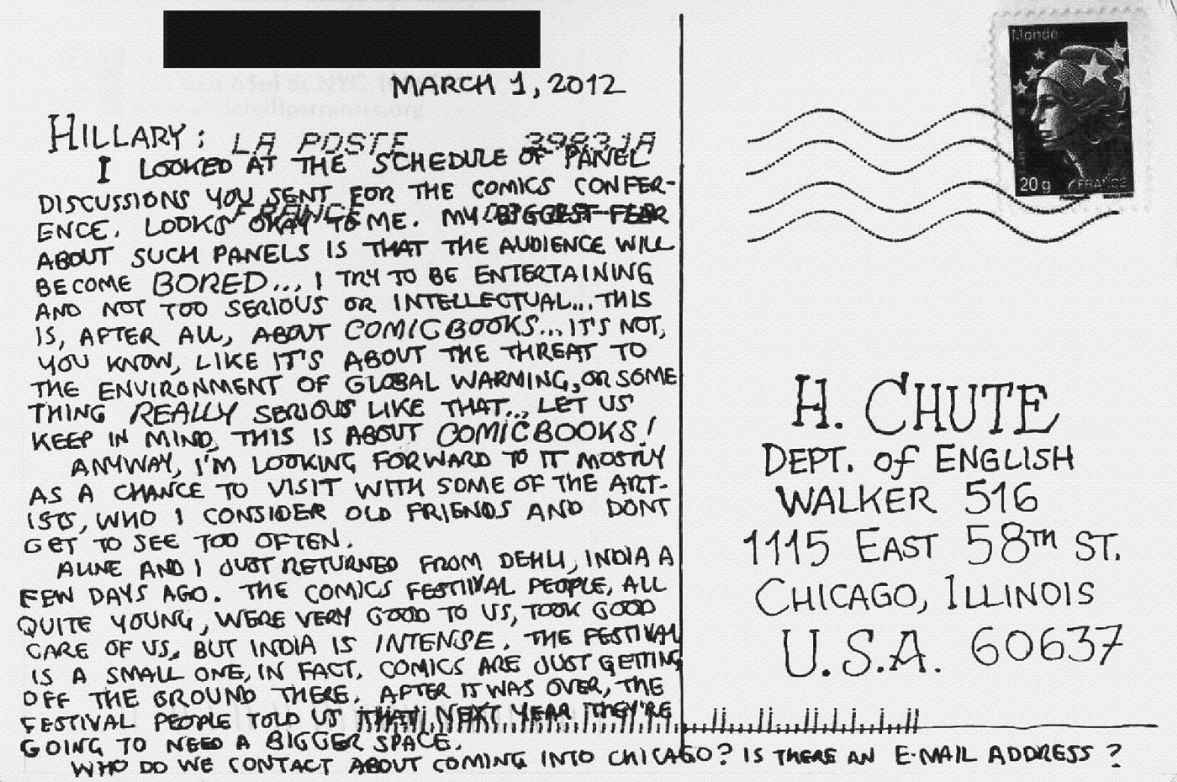 MARCH 1, 2012
HILLARY:
LA POSTE 39831A
I LOOKED AT THE SCHEDULE OF PANEL
DISCUSSIONS YOU SENT FOR THE COMICS CONFER-
FRANCE
ENCE. LOOKS OKAY TO ME. MY BIGGEST FEAR
ABOUT SUCH PANELS IS THAT THE AUDIENCE WILL
BECOME BORED... I TRY TO BE ENTERTAINING
AND NOT TOO SERIOUS OR INTELLECTUAL... THIS
IS, AFTER ALL, ABOUT COMIC BOOKS... IT'S NOT,
YOU KNOW, LIKE IT'S ABOUT THE THREAT TO
THE ENVIRONMENT OF GLOBAL WARMING, OR SOME
THING REALLY SERIOUS LIKE THAT... LET US
KEEP IN MIND, THIS IS ABOUT COMIC BOOKS!
ANYWAY, I'M LOOKING FORWARD TO IT MOSTLY
AS A CHANCE TO VISIT WITH SOME OF THE ART-
ISTS, WHO I CONSIDER OLD FRIENDS AND DONT
GET TO SEE TOO OFTEN.
ALINE AND I JUST RETURNED FROM DEHLI, INDIA A
FEW DAYS AGO. THE COMICS FESTIVAL PEOPLE, ALL
QUITE YOUNG, WERE VERY GOOD TO US, TOOK GOOD
CARE OF US, BUT INDIA IS INTENSE. THE FESTIVAL
IS A SMALL ONE, IN FACT, COMICS ARE JUST GETTING
OFF THE GROUND THERE. AFTER IT WAS OVER, THE
FESTIVAL PEOPLE TOLD US THAT NEXT YEAR THEY'RE
GOING TO NEED A BIGGER SPACE.
WHO DO WE CONTACT ABOUT COMING INTO CHICAGO? IS THERE AN E-MAIL ADDRESS?
Monde
20 g FRANCE
H. CHUTE
DEPT. of ENGLISH
WALKER 516
1115 EAST 58TH ST.
CHICAGO, ILLINOIS
U.S.A. 60637